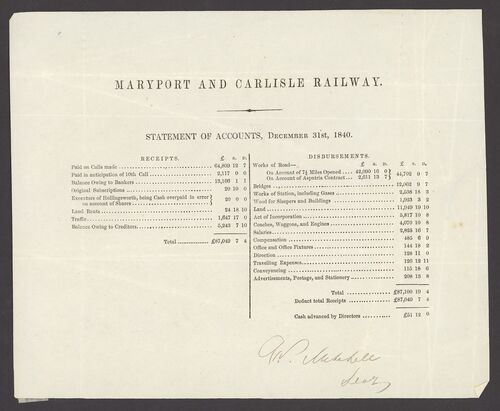 MARYPORT AND CARLISLE RAILWAY.
STATEMENT OF ACCOUNTS, DECEMBER 31st, 1840.
RECEIPTS. £ s. D.
Paid on Calls made 64,809 12 7
Paid in anticipation of 10th Call 2,117 0 0
Balance Owing to Bankers 13,166 1 1
Original Subscriptions 20 10 0
Executors of Hollingsworth, being Cash overpaid in error on account of Shares 20 0 0
Land Rents 24 18 10
Traffic 1,647 17 0
Balance Owing to Creditors 5,243 7 10
Total £87,049 7 4
DISBURSEMENTS. £ s. D.
Works of Road—
On Account of 7½ Miles Opened 42,090 16 0
On Account of Aspatria Contract 2,611 13 7
44,702 9 7
Bridges 12,002 9 7
Works of Station, including Gases 2,538 18 3
Wood for Sleepers and Buildings 1,923 3 2
Land 11,949 19 10
Act of Incorporation 5,817 10 8
Coaches, Waggons, and Engines 4,070 10 8
Salaries 2,825 16 7
Compensation 485 6 0
Office and Office Fixtures 144 18 2
Direction 128 11 0
Travelling Expenses 120 12 11
Conveyancing 115 18 6
Advertisements, Postage, and Stationery 208 15 8
Total £87,100 19 4
Deduct total Receipts £87,049 7 4
Cash advanced by Directors £51 12 0
W. Mitchell
Secy